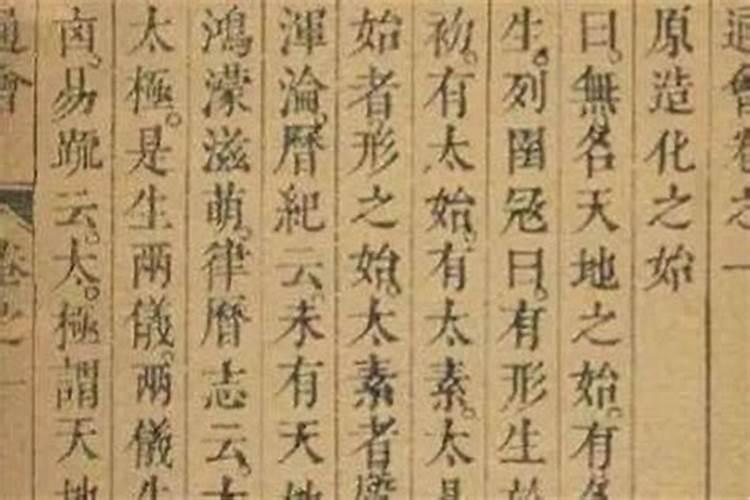 通會卷之一
原造化之始
曰。無名天地之始。有名
生。列圄寇曰。有形生於
初。有太始。有太素。太易
始者形之始。太素者
渾淪。曆紀云。未有天地
鴻濛滋萌。律曆志云。太
太極。是生兩儀。兩儀生
卤。易疏云。太。極謂天地
通會 卷之一